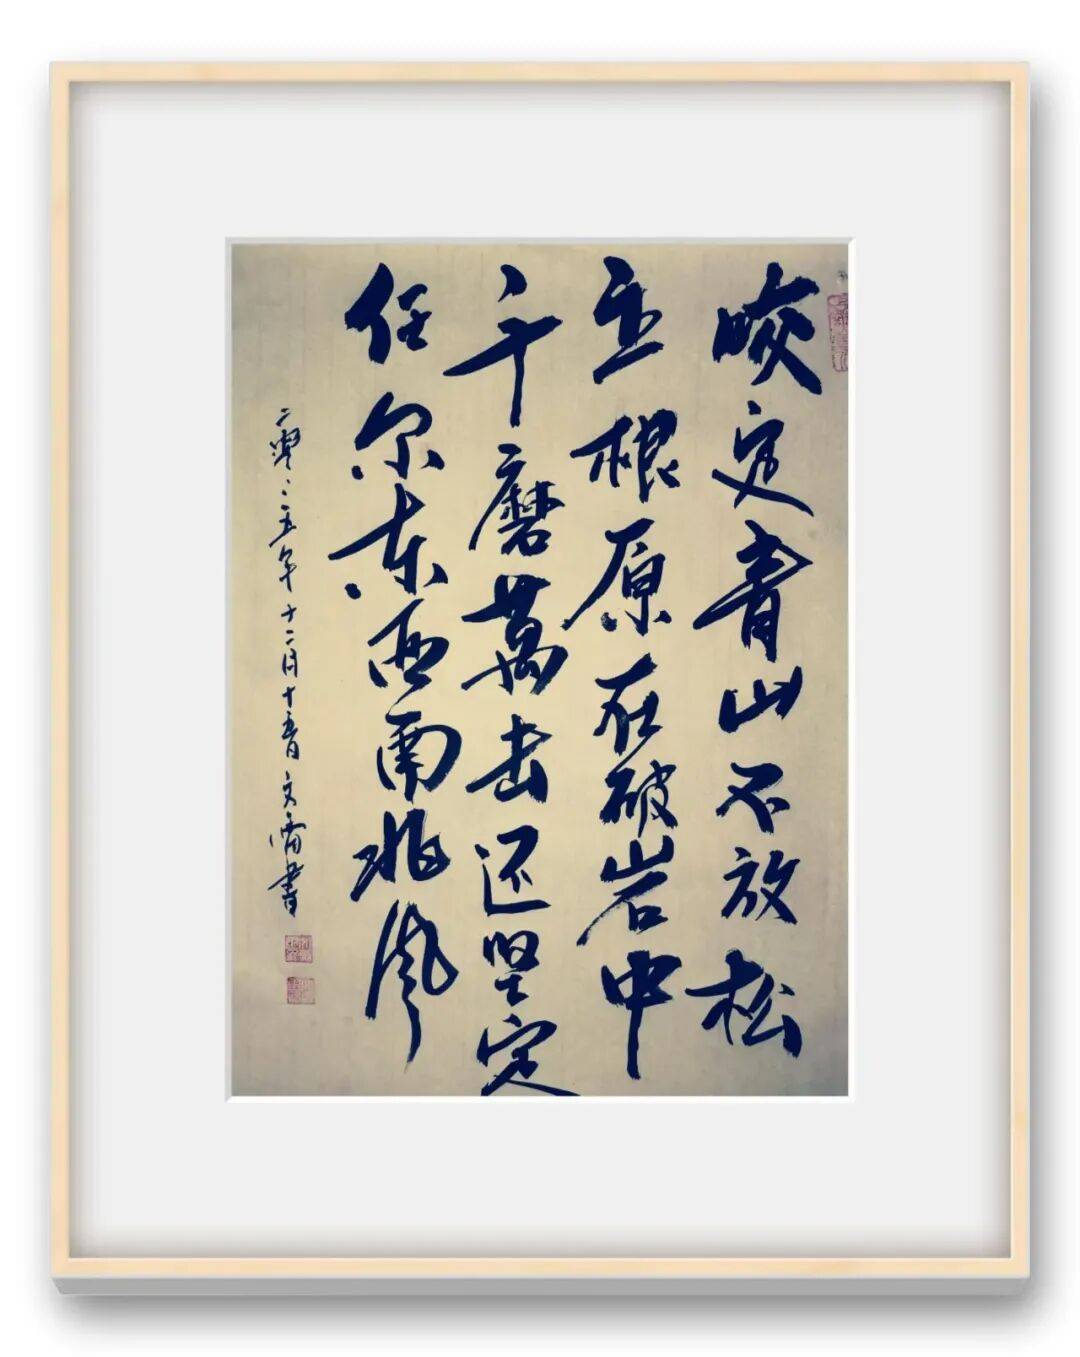 咬定青山不放松
立根原在破岩中
千磨萬击还坚定
任尔东西南北风
二零二五年十二月十五日文書